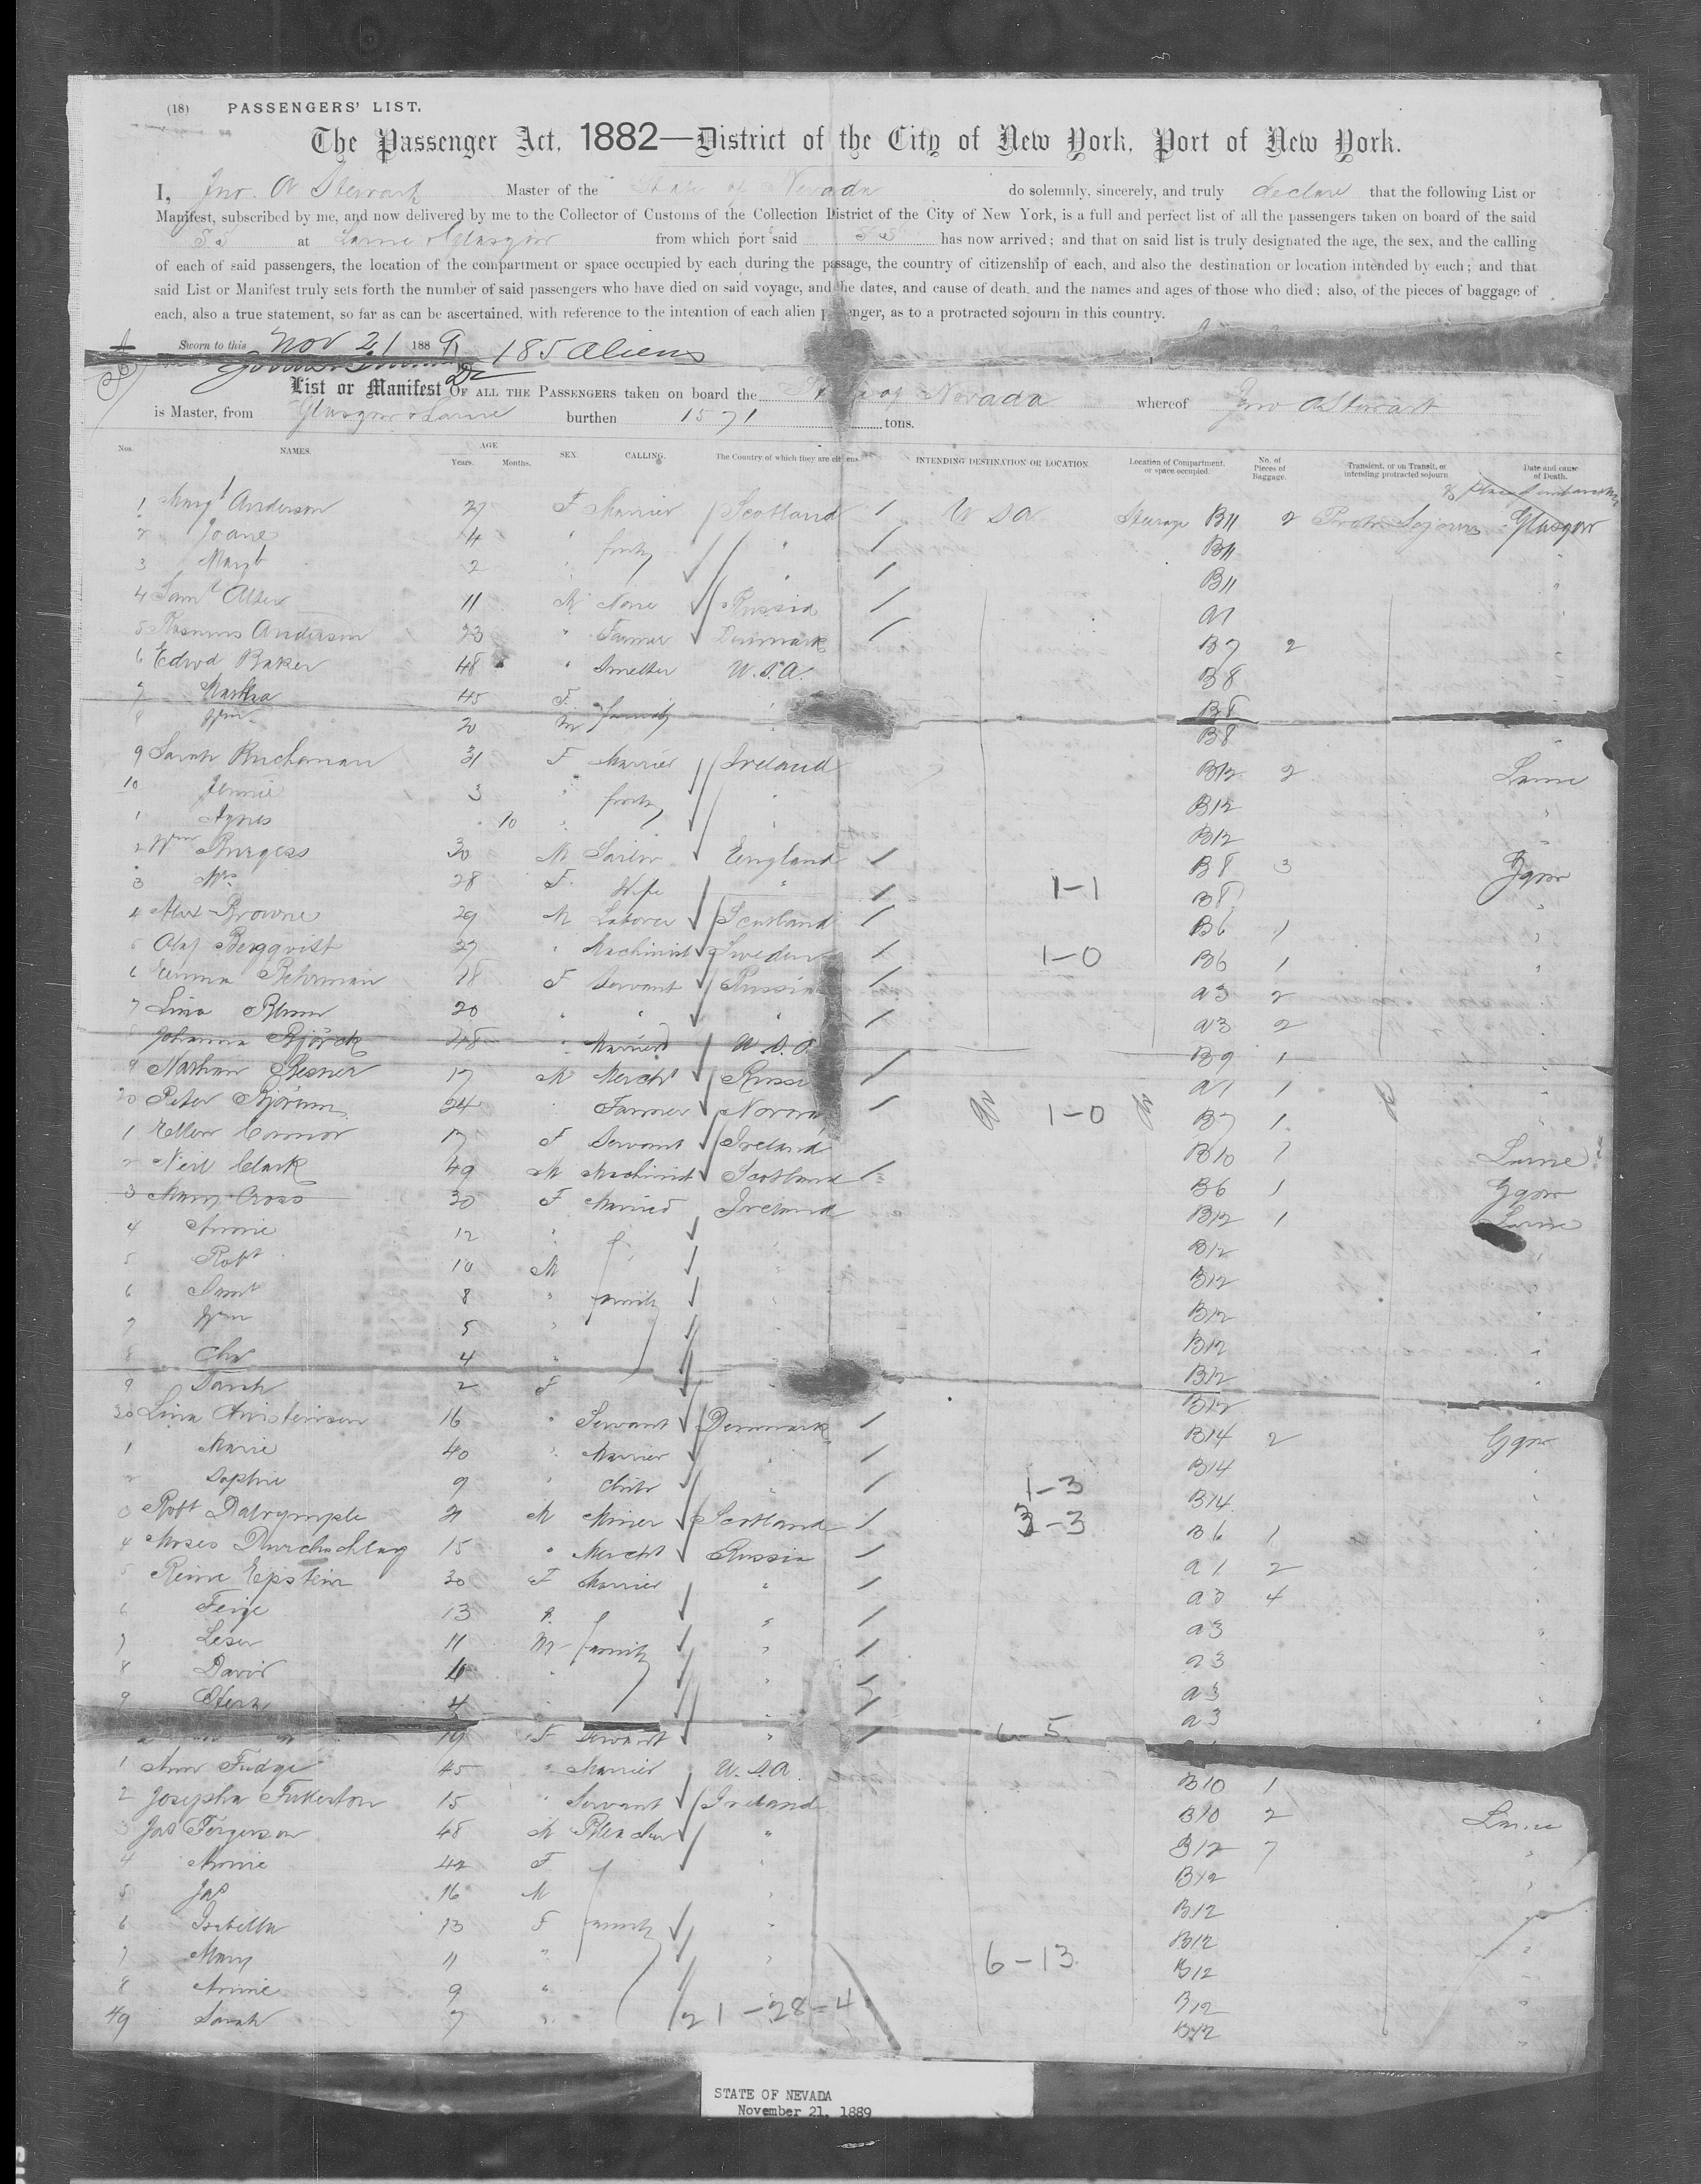 (18) PASSENGERS' LIST.
The Passenger Act, 1882—District of the City of New York, Port of New York.
I, Jno. A Stewart Master of the State of Nevada do solemnly, sincerely, and truly declare that the following List or
Manifest, subscribed by me, and now delivered by me to the Collector of Customs of the Collection District of the City of New York, is a full and perfect list of all the passengers taken on board of the said
SS at Larne & Glasgow from which port said SS has now arrived; and that on said list is truly designated the age, the sex, and the calling
of each of said passengers, the location of the compartment or space occupied by each during the passage, the country of citizenship of each, and also the destination or location intended by each; and that
said List or Manifest truly sets forth the number of said passengers who have died on said voyage, and the dates, and cause of death, and the names and ages of those who died; also, of the pieces of baggage of
each, also a true statement, so far as can be ascertained, with reference to the intention of each alien passenger, as to a protracted sojourn in this country.
Sworn to this Nov 21 1889 185 Aliens
List or Manifest OF ALL THE PASSENGERS taken on board the State of Nevada whereof Jno A Stewart
is Master, from Glasgow & Larne burthen 1571 tons.
Nos. NAMES. AGE Years. Months. SEX. CALLING. The Country of which they are citizens. INTENDING DESTINATION OR LOCATION. Location of Compartment, or space occupied. No. of Pieces of Baggage. Transient, or on Transit, or intending protracted sojourn Date and cause of Death.
1 Margt Anderson 27 F Married Scotland U S A Steerage B11 2 Protr Sojourn Glasgow
2 Joane 4 " " B11
3 Margt 2 " " B11
4 Saml Alter 11 M None Russia A1
5 Rasmus Anderson 23 " Farmer Denmark B7 2
6 Edwd Baker 48 " Smelter U.S.A. B8
7 Martha 45 F family B8
8 Wm 20 M B8
9 Sarah Buchanan 31 F Married Ireland B12 2 Larne
10 Jennie 3 " B12
1 Agnes 10 " B12
2 Wm Burgess 30 M Sailor England B8 3 Ggow
3 Mrs 28 F Wife " 1-1 B8
4 Alex Browne 29 M Laborer Scotland B6 1
5 Olaf Bergqvist 27 " Machinist Sweden 1-0 B6 1
6 18 F Servant Russia A3 2
7 Lina Blum 20 " " " A3 2
8 Johanna Bjorck 48 " Married U.S.A B9 1
9 Nathan Besner 17 M Mercht Russi A1 1
20 Peter 24 Farmer Norwa 1-0 B7 1
1 Ellen Connor 17 F Servant Ireland B10 1 Larne
2 Neil Clark 49 M Machinist Scotland B6 1 Ggow
3 Mary Cross 30 F Married Ireland B12 1 Larne
4 Annie 12 " B12
5 Robt 10 M B12
6 Saml 8 " family B12
7 Wm 5 " B12
8 4 " B12
9 Sarah 2 F B12
30 Lina Christensen 16 " Servant Denmark B14 2 Ggow
1 Marie 40 " Married " B14
2 Sophie 9 " Child " 1-3 B14
3 Robt Dalrymple M Miner Scotland 3-3 B6 1
4 Moses Durchschlag 15 " Mercht Russia A1 2
5 Reine Epstein 30 F Married " A3 4
6 Feige 13 " A3
7 Leser 11 M family " A3
8 David " A3
9 4 " A3
19 F Servant " 6-5
1 Ann Fudge 45 " Married U.S.A B10 1
2 Josepha Fukerton 15 " Servant Ireland B10 2 Larne
3 Jas Fergerson 48 M Bleacher " B12 7
4 Annie 42 F " B12
5 Jas 16 M " B12
6 Isabella 13 F family " B12
7 Mary 11 " " 6-13 B12
8 Annie 9 " B12
49 Sarah 7 " 21-28=4 B12
STATE OF NEVADA
November 21, 1889